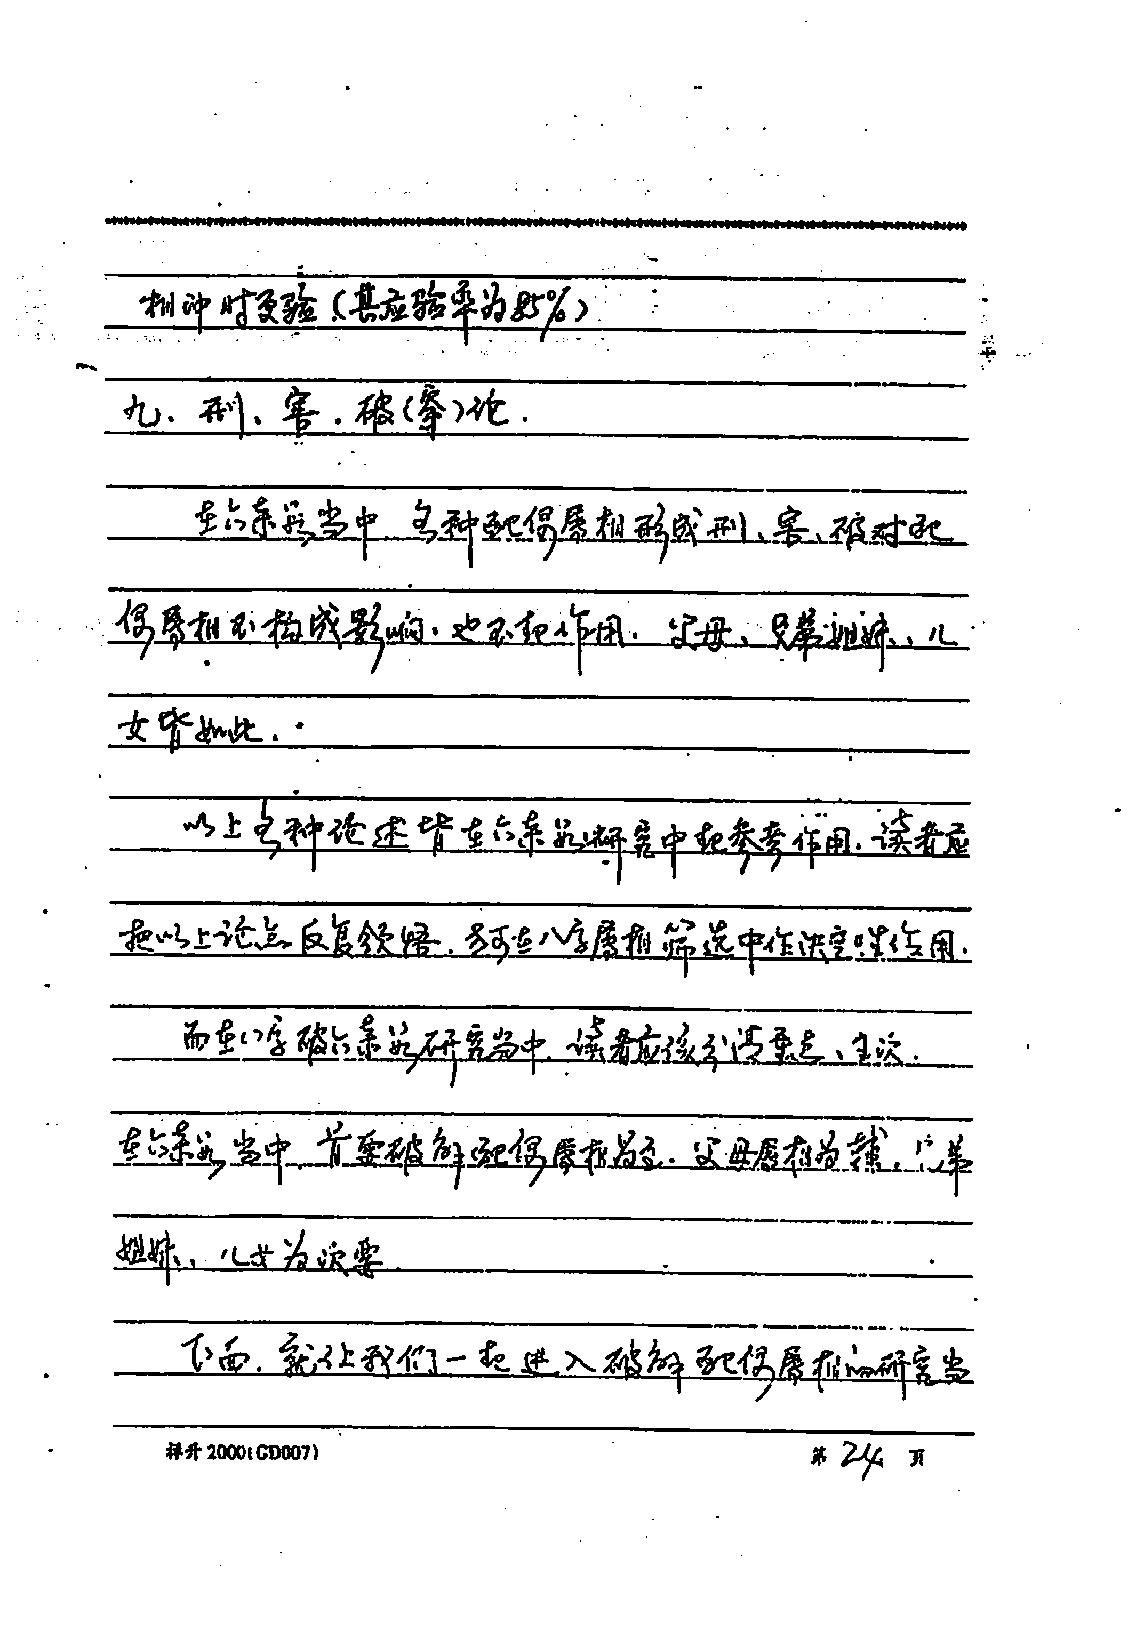 相冲时更验(其应验率为85%)
九、刑、害、破(拿)论.
在六亲宫当中,各种配偶属相形成刑、害、破对配
偶属相不构成影响,也不起作用.父母、兄弟姐妹、儿
女皆如此.
以上各种论述皆在六亲宫研究中起参考作用.读者应
把以上论点反复领悟,方可在八字属相筛选中作决定性作用.
而在八字破六亲宫研究当中,读者应该分清重点、主次.
在六亲宫当中,首要破解配偶属相为主.父母属相为辅,兄弟
姐妹、儿女为次要
下面,就让我们一起进入破解配偶属相的研究当
祥升2000(CD007)
第24页